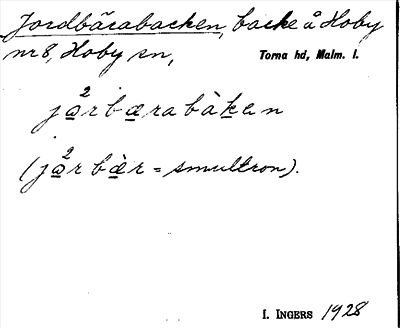 Jordbärabacken, backe å Hoby
nr 8, Hoby sn, Torna hd, Malm. l.
ja̲²r bæ̲ra bàk̲en
(ja̲²r bæ̲̀r = smultron).
I. INGERS 1928